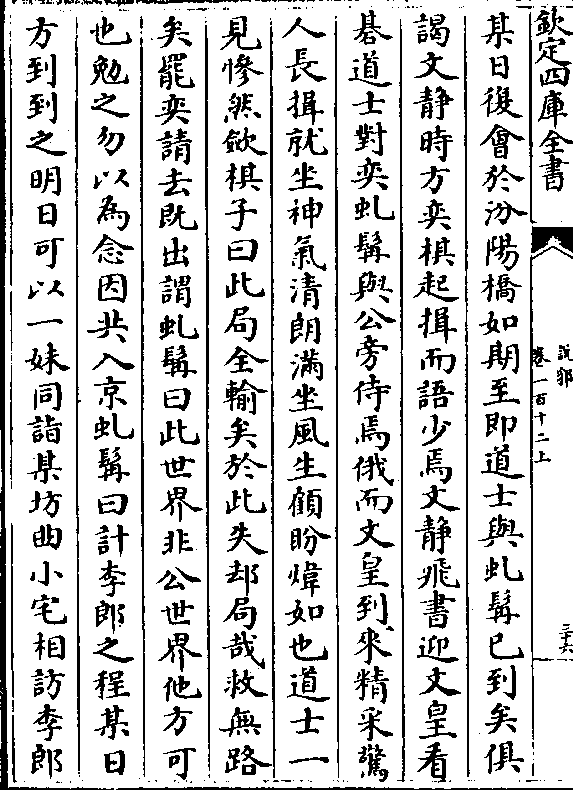 欽定四庫全書
說郛
卷一百十二上
三十六
某日復會於汾陽橋如期至即道士與虬髯已到矣俱
謁文静時方奕棋起揖而語少焉文静飛書迎文皇看
碁道士對奕虬髯與公旁侍焉俄而文皇到來精采驚
人長揖就坐神氣清朗滿坐風生顧盼煒如也道士一
見慘然斂棋子曰此局全輸矣於此失却局哉救無路
矣罷奕請去既出謂虬髯曰此世界非公世界他方可
也勉之勿以為念因共入京虬髯曰計李郎之程某日
方到到之明日可以一妹同詣某坊曲小宅相訪李郎